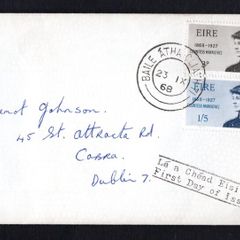 EIRE
1868-1927
COUNTESS MARKIEVICZ
3p
BAILE ÁTHA CLIATH
23 IX
68
EIRE
1868-1927
COUNTESS MARKIEVICZ
1/5
Johnson.
45 St. Attracta Rd.
CABRA.
Dublin 7.
Lá a Chéad Eisi
First Day of Iss